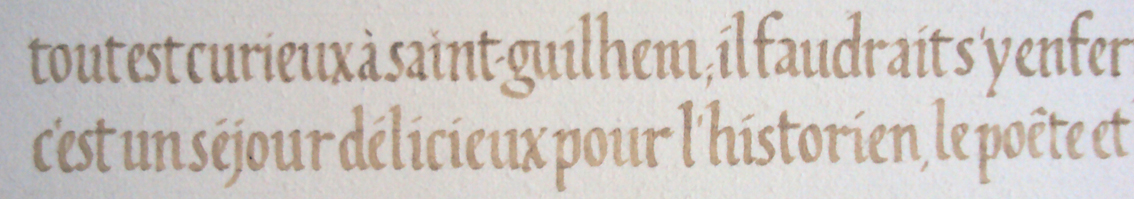 tout est curieux à saint-guilhem; il faudrait s'y enfer
c'est un séjour délicieux pour l'historien, le poête et